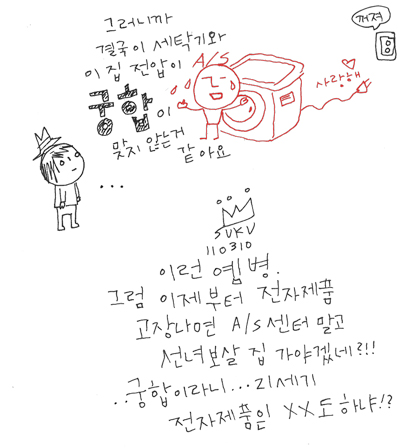 그러니까
결국 이 세탁기와
이 집 전압이
궁합이
맞지 않는거
같아요
A/S
사랑해
꺼져
...
SUKU
110310
이런 옙병.
그럼 이제부터 전자제품
고장나면 A/S센터 말고
선녀보살 집 가야겠네?!!
..궁합이라니... 21세기
전자제품은 XX도 하냐!?